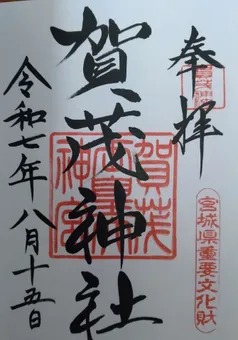 奉拝
賀茂神社
令和七年八月十五日
宮城県重要文化財